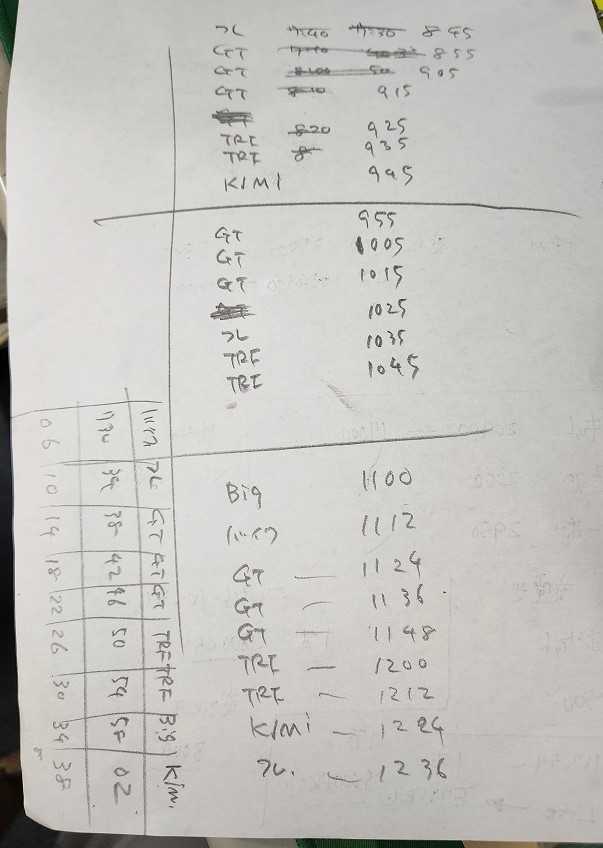 フレ 7:40 7:30 845
GT 855
GT 905
GT 810 915
TRF 820 925
TRF 8 935
K/MI 945
955
GT 1005
GT 1015
GT 1025
フレ 1035
TRF 1045
TRF
Big 1100
バイク 1112
GT — 1124
GT — 1136
GT — 1148
TRF — 1200
TRF — 1212
K/Mi — 1224
フレ. — 1236
バイク フレ GT GT GT TRF TRF Big K/Mi
1130 34 38 42 46 50 54 58 02
06 10 14 18 22 26 30 34 38